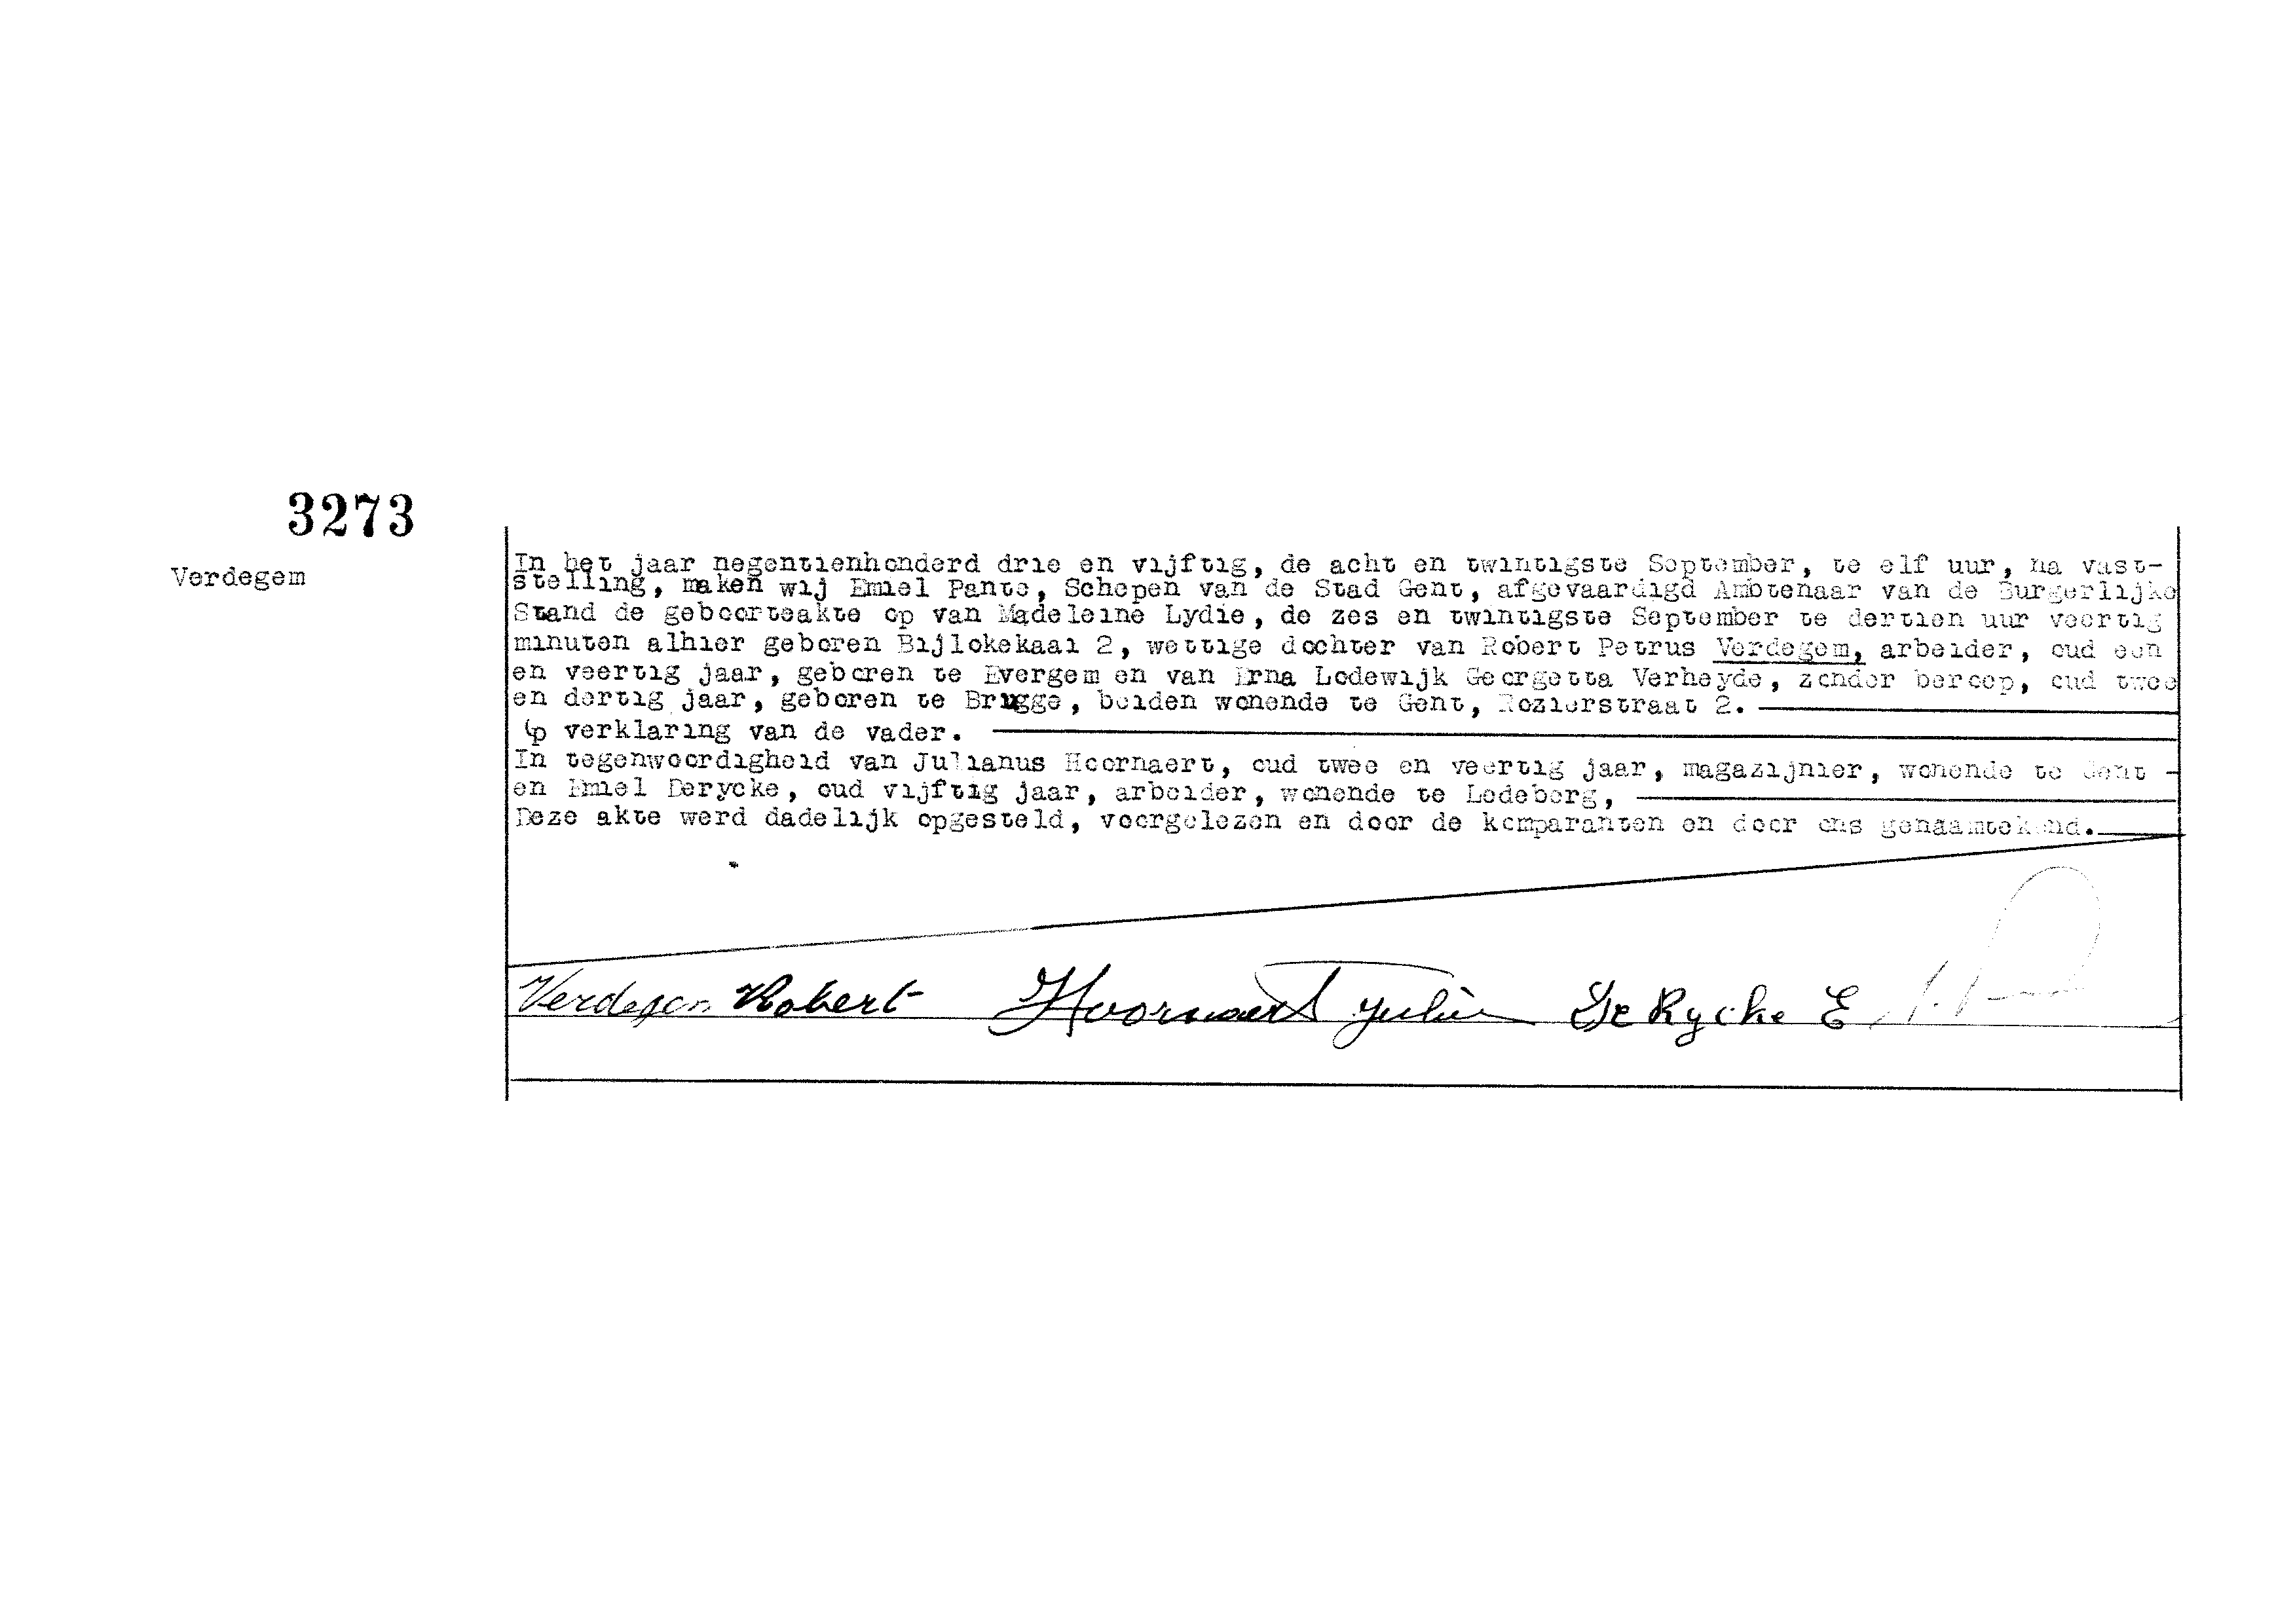 3273
Verdegem
In het jaar negentienhonderd drie en vijftig, de acht en twintigste September, te elf uur, na vast-
stelling, maken wij Emiel Pante, Schepen van de Stad Gent, afgevaardigd Ambtenaar van de Burgerlijke
Stand de geboorteakte op van Madeleine Lydie, de zes en twintigste September te dertien uur veertig
minuten alhier geboren Bijlokekaai 2, wettige dochter van Robert Petrus Verdegem, arbeider, oud een
en veertig jaar, geboren te Evergem en van Irna Lodewijk Georgetta Verheyde, zonder beroep, oud twee
en dertig jaar, geboren te Brugge, beiden wonende te Gent, Rozierstraat 2.
Op verklaring van de vader.
In tegenwoordigheid van Julianus Hoornaert, oud twee en veertig jaar, magazijnier, wonende te Gent -
en Emiel Derycke, oud vijftig jaar, arbeider, wonende te Ledeberg,
Deze akte werd dadelijk opgesteld, voorgelezen en door de komparanten en door ons genaamtekend.
Verdegem Robert Hoornaert Julien De Rycke E